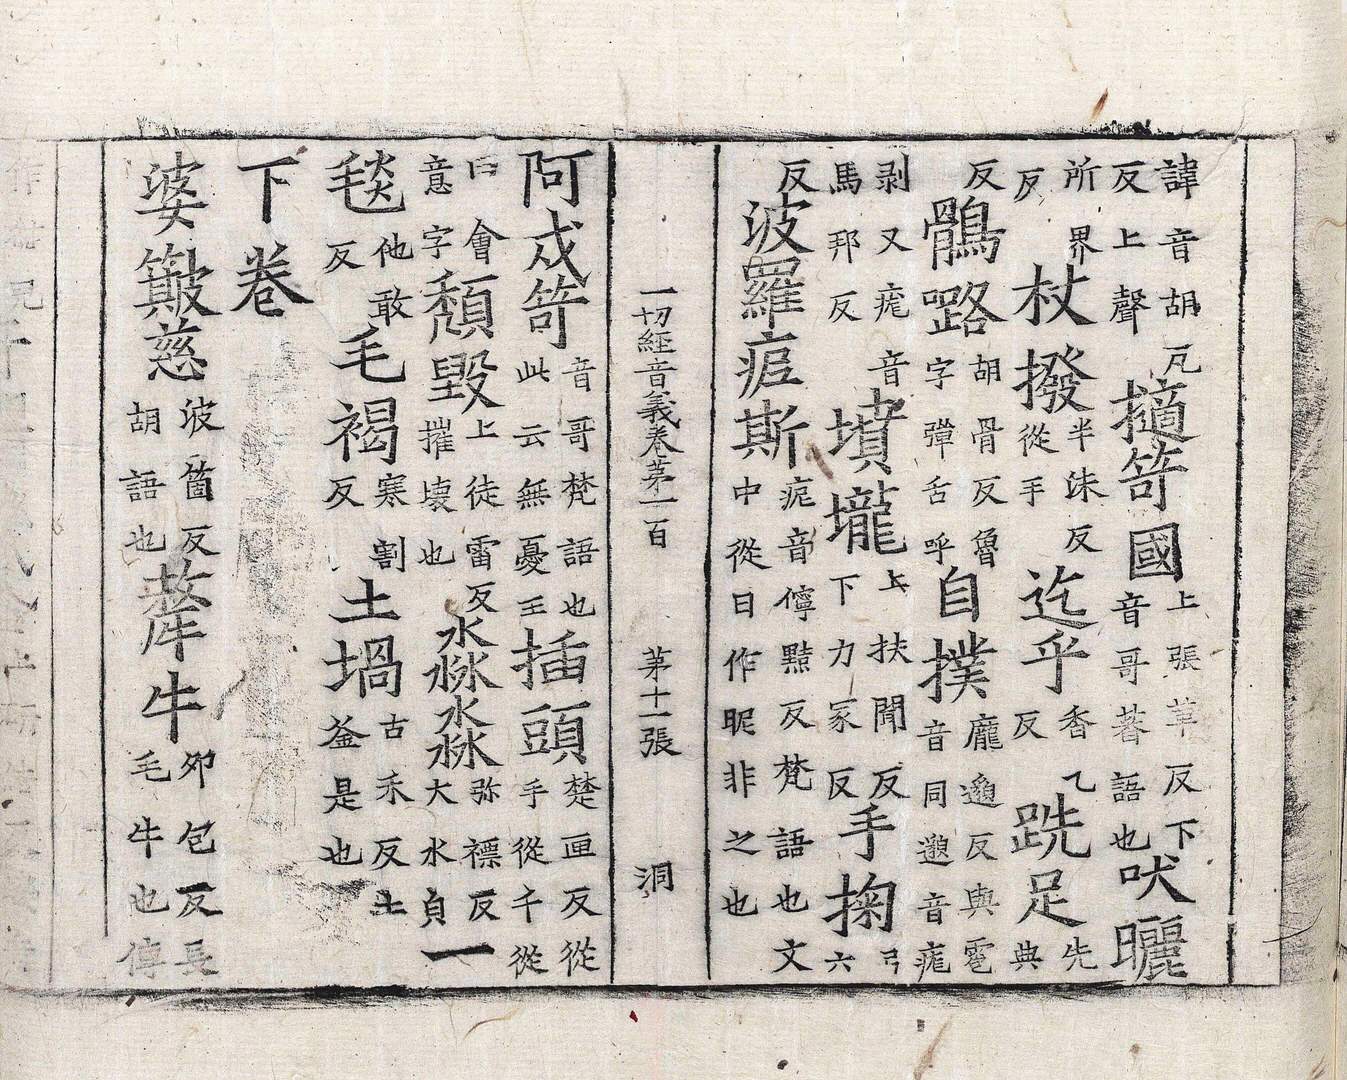 諱音胡瓦反上聲擿笴國上張革反下音哥蕃語也吠曬
所界反杖撥半沫反從手迄乎香乙反跣足先典
反鶻路胡骨反魯字彈舌呼自撲龐邈反與雹音同邈音
剥又音馬邦反墳壠上扶聞反下力冢反手掬弓六
反波羅痆斯痆音儜黠反梵語也文中從日作昵非之也
一切經音義卷苐一百 苐十一張 洞
阿戍笴音哥梵語也此云無憂王插頭楚匣反從手從千從
臼會意字頽毀上徒雷反摧壞也淼淼弥褾反大水皃一
毯他敢反毛褐寒割反土堝古禾反土釜是也
下卷
婆簸慈波箇反胡語也犛牛卯包反長毛牛也傳